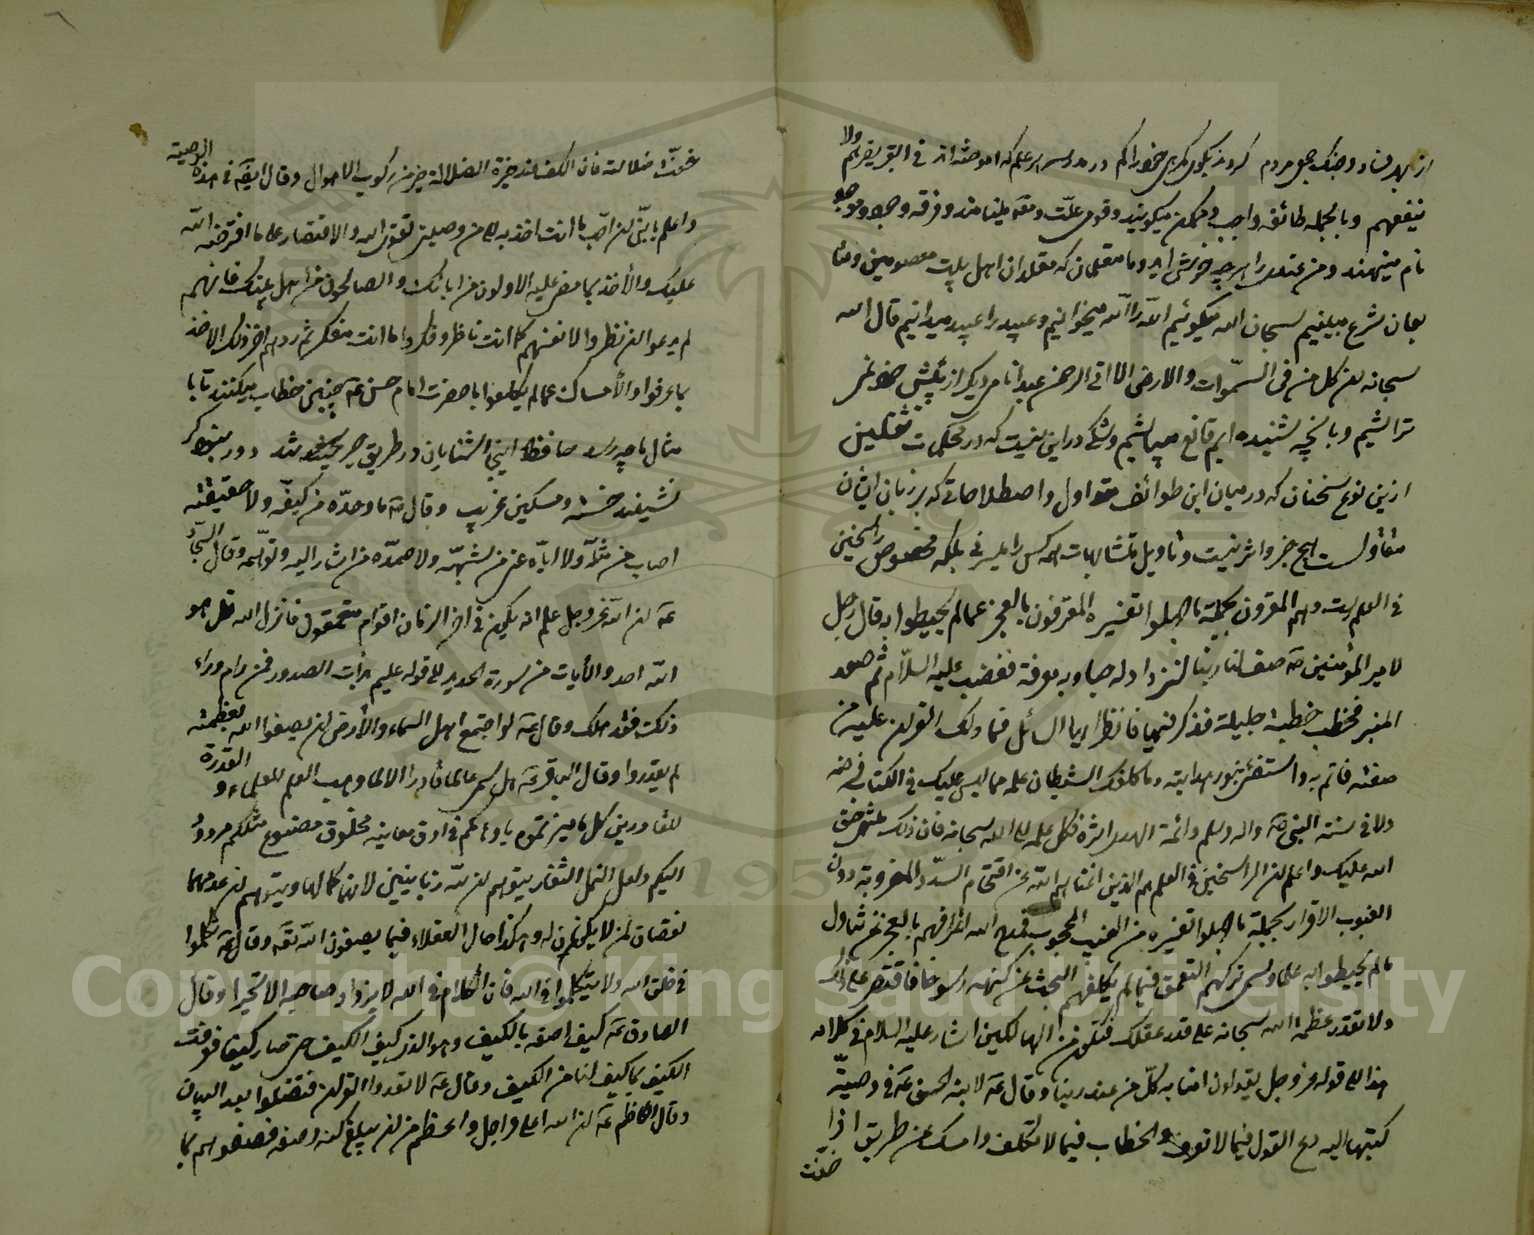 نیفعهم وبالجمله طائفه واجب و ممکن میکویند وقومی علّت ومعلول مینامند وفرقه وجود وموجود
نام مینهند ومن عندی را بهر چه خوش اید وما مقلدان که مقلدان اهل بیت معصومین
بهمان شرع مبینیم سبحان الله میکوئیم الله را الله میخوانیم وعبید را عبید میدانیم قال الله
سبحانه ان کل من فی السموات والارض الا اتی الرحمن عبدا نام دیکر از پیش خود نمی
تراشیم وبانچه شنیده ایم قانع میباشیم وشکی در این نیست که در محکمات ثقلین
ازین نوع سخنان که در میان این طوائف متداول واصطلاحاتی که بر زبان ایشان
متقاولست هیچ خبر واثر نیست وتاویل متشابهات همه کس را میسر نی بلکه مخصوص راسخین
فی العلم است وهم المقرون بجملة ما جهلوا تفسیره المعترفون بالعجز عما لم یحیطوا به قال رجل
لامیر المؤمنین صف لنا ربنا لنزداد له حبا وبه معرفة فغضب علیه السلام ثم صعد
المنبر فخطب خطبة جلیلة فذکر فیها فانظر ایها السائل فما دلک القران علیه من
صفته فائتم به واستضئ بنور هدایته وما کلفک الشیطان علمه مما لیس علیک فی الکتاب فرضه
ولا فی سنة النبی ص واله وسلم وائمة الهدی اثره فکل علمه الی الله سبحانه فان ذلک منتهی حق
الله علیک واعلم ان الراسخین فی العلم هم الذین اغناهم الله عن اقتحام السدد المضروبة دون
الغیوب الاقرار بجملة ما جهلوا تفسیره من الغیب المحجوب فمدح الله اعترافهم بالعجز عن تناول
ما لم یحیطوا به علما وسمی ترکهم التعمق فیما لم یکلفهم البحث عن کنهه رسوخا فاقتصر علی ذلک
ولا تقدر عظمة الله سبحانه علی قدر عقلک فتکون من الهالکین اشار علیه السلام فی کلامه
هذا الی قوله عز وجل یقولون امنا به کل من عند ربنا وقال ع لابنه الحسن ع فی وصیة
کتبها الیه دع القول فیما لا تعرف والخطاب فیما لا تکلف وامسک عن طریق اذا
خفت
خفت ضلالته فان الکف عند حیرة الضلالة خیر من رکوب الاهوال وقال ایضا فی هذه الوصیة
واعلم یا بنی ان احب ما انت اخذ به الی من وصیتی تقوی الله والاقتصار علی ما افترضه الله
علیک والاخذ بما مضی علیه الاولون من ابائک والصالحون من اهل بیتک فانهم
لم یدعوا ان نظروا لانفسهم کما انت ناظر وفکروا کما انت مفکر ثم ردهم اخر ذلک الاخذ
بما عرفوا والامساک عما لم یکلفوا با حضرت امام حسن ع چنین خطاب میکنند تا با
مثال ما چه رسد
نشیند خسته ومسکین غریب وقال ع ما وحده من کیفه ولا حقیقته
اصاب من مثله ولا ایاه عنی من شبهه ولا صمده من اشار الیه وتوهمه وقال السجاد
ع ان الله عز وجل علم انه یکون فی اخر الزمان اقوام متعمقون فانزل الله قل هو
الله احد والایات من سورة الحدید الی قوله علیم بذات الصدور فمن رام وراء
ذلک فقد هلک وقال ع لو اجتمع اهل السماء والارض ان یصفوا الله بعظمته
لم یقدروا وقال الباقر ع هل سمی عالما قادرا الا لما وهب العلم للعلماء والقدرة
للقادرین کل ما میزتموه باوهامکم فی ادق معانیه مخلوق مصنوع مثلکم مردود
الیکم ولعل النمل الصغار یتوهم ان لله زبانیتین لانهما کمالها ویتوهم ان عدمهما
نقصان لمن لا یکونان له وهکذا حال العقلاء فیما یصفون الله تعالی وقال ع تکلموا
فی خلق الله ولا تتکلموا فی الله فان الکلام فی الله لا یزداد صاحبه الا تحیرا وقال
الصادق ع کیف اصفه بالکیف وهو الذی کیف الکیف حتی صار کیفا فعرفت
الکیف بما کیف لنا من الکیف وقال ع لا تعدوا القران فتضلوا بعد البیان
وقال الکاظم ع ان الله اعلی واجل واعظم من ان یبلغ کنه صفته فصفوه بما